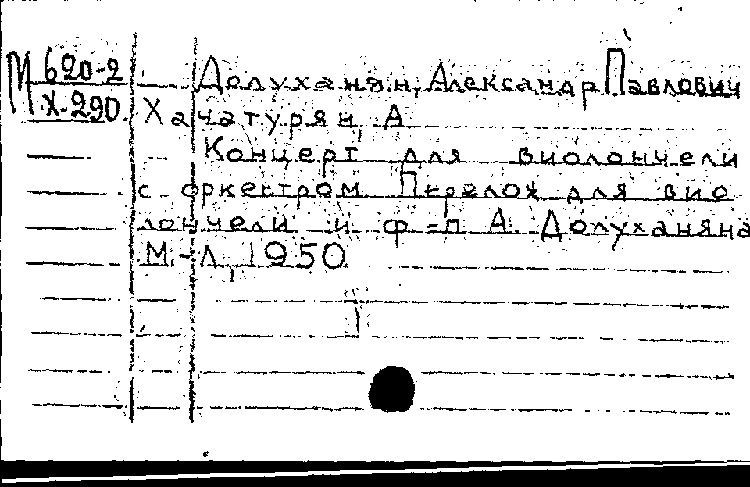 М 620-2
Х-290
Долуханян, Александр Павлович
Хачатурян, А
Концерт для виолончели
с оркестром. Перелож для вио
лончели и ф-п А. Долуханяна
М-Л, 1950